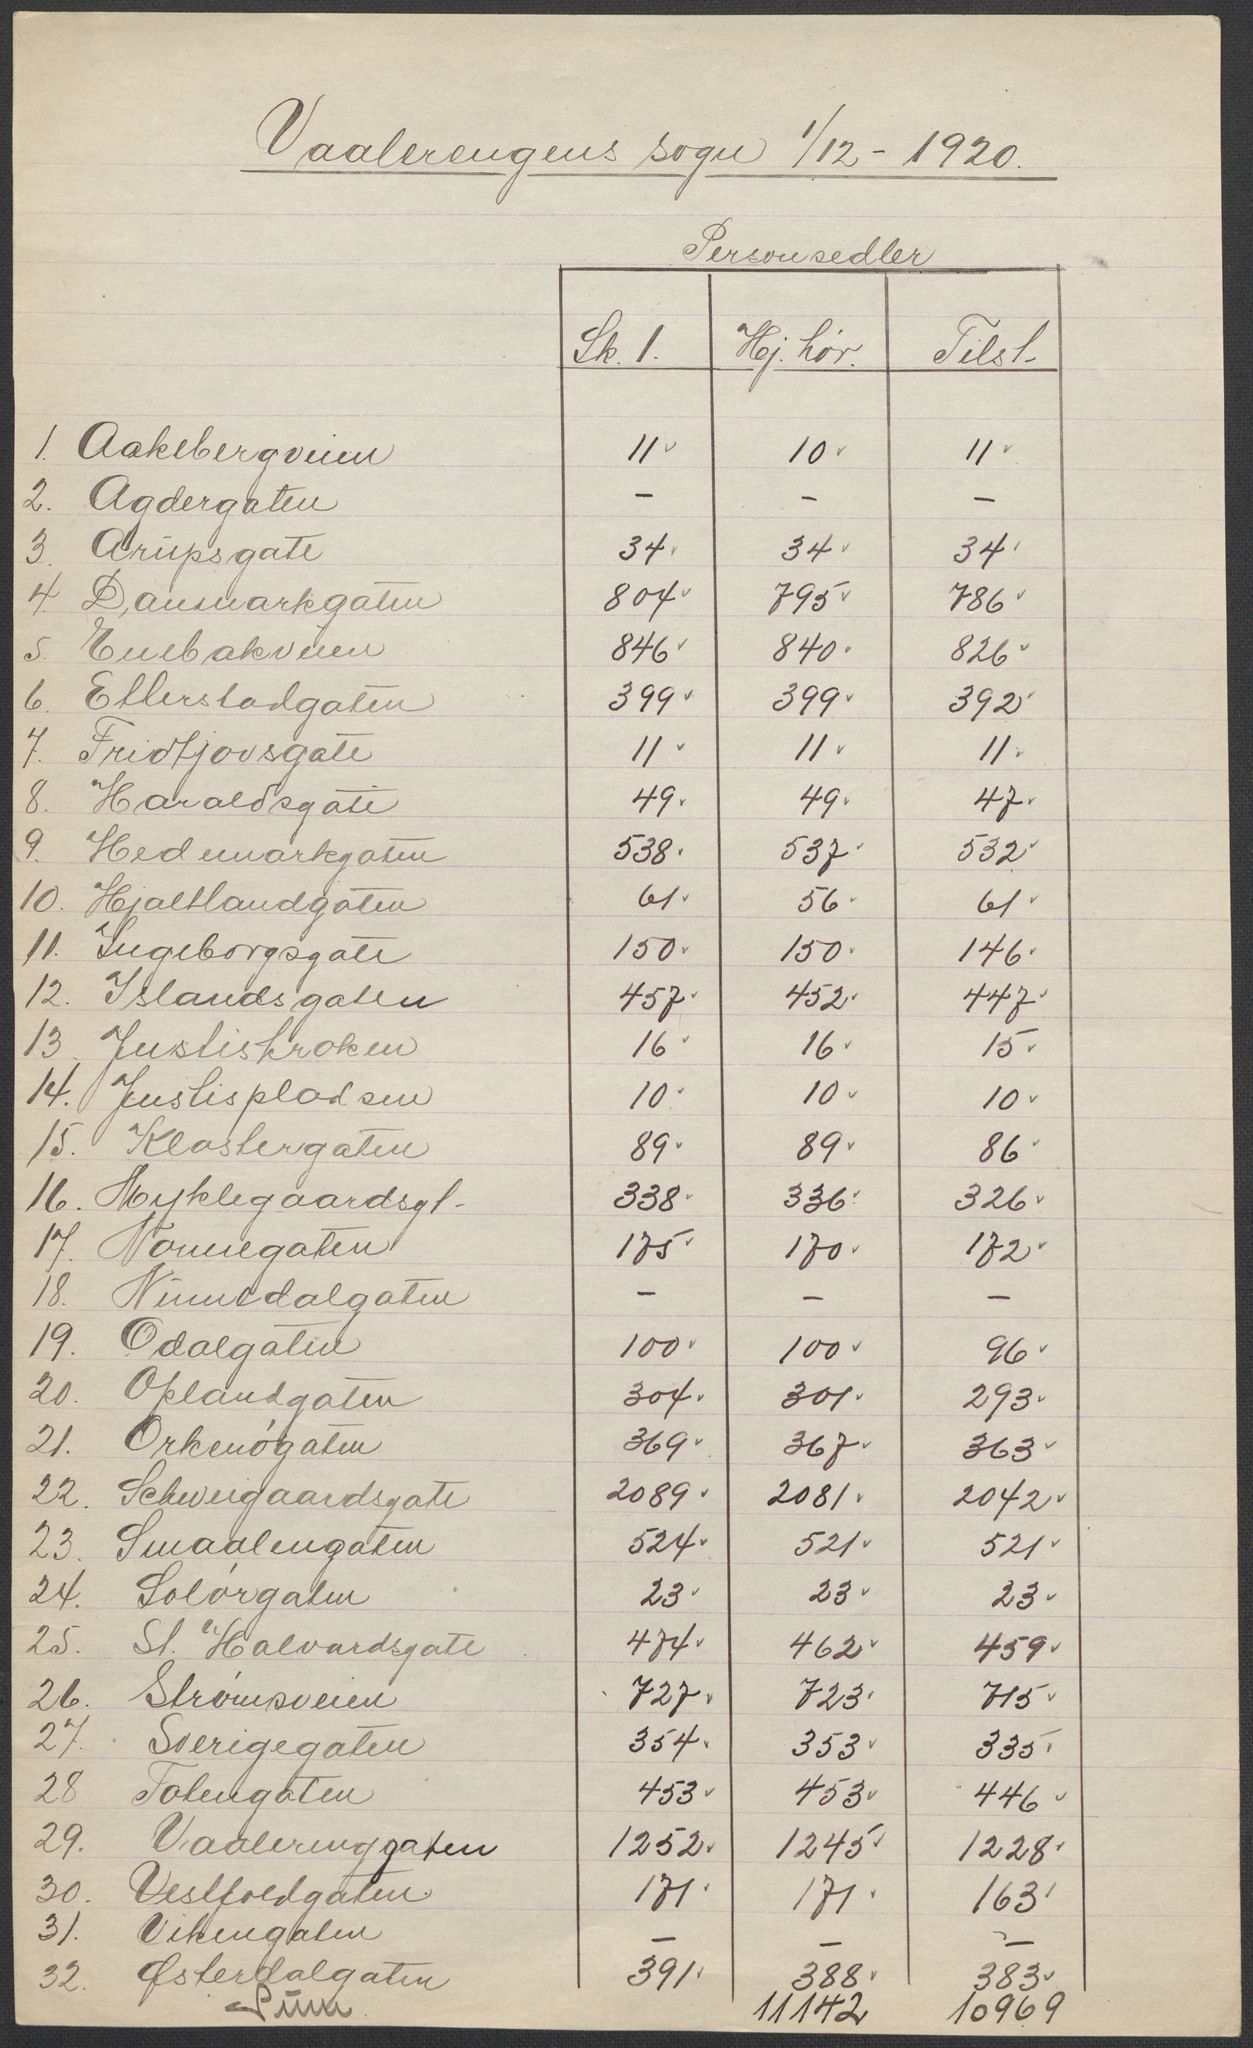 Vaalerengens sogn 1/12 - 1920.
Personsedler
Sk. 1. Hj. hør. Tilst.
1. Aakebergveien 11 10 11
2. Agdergaten - - -
3. Arupsgate 34 34 34
4. Danmarkgaten 804 795 786
5. Enebakveien 846 840 826
6. Etterstadgaten 399 399 392
7. Fridtjovsgate 11 11 11
8. Haraldsgate 49 49 47
9. Hedemarkgaten 538 537 532
10. Hjaltlandgaten 61 56 61
11. Ingeborgsgate 150 150 146
12. Islandsgaten 457 452 447
13. Justiskroken 16 16 15
14. Justispladsen 10 10 10
15. Klostergaten 89 89 86
16. Myklegaardsgt. 338 336 326
17. Nonnegaten 175 170 172
18. Numedalgaten - - -
19. Odalgaten 100 100 96
20. Oplandgaten 304 301 293
21. Orknøgaten 369 367 363
22. Schweigaardsgate 2089 2081 2042
23. Smaalengaten 524 521 521
24. Solørgaten 23 23 23
25. St. Halvardsgate 474 462 459
26. Strømsveien 727 723 715
27. Sverigegaten 354 353 335
28 Totengaten 453 453 446
29. Vaalerenggaten 1252 1245 1228
30. Vestfoldgaten 171 171 163
31. Vikengaten - - -
32. Østerdalgaten 391 388 383
Sum 11142 10969